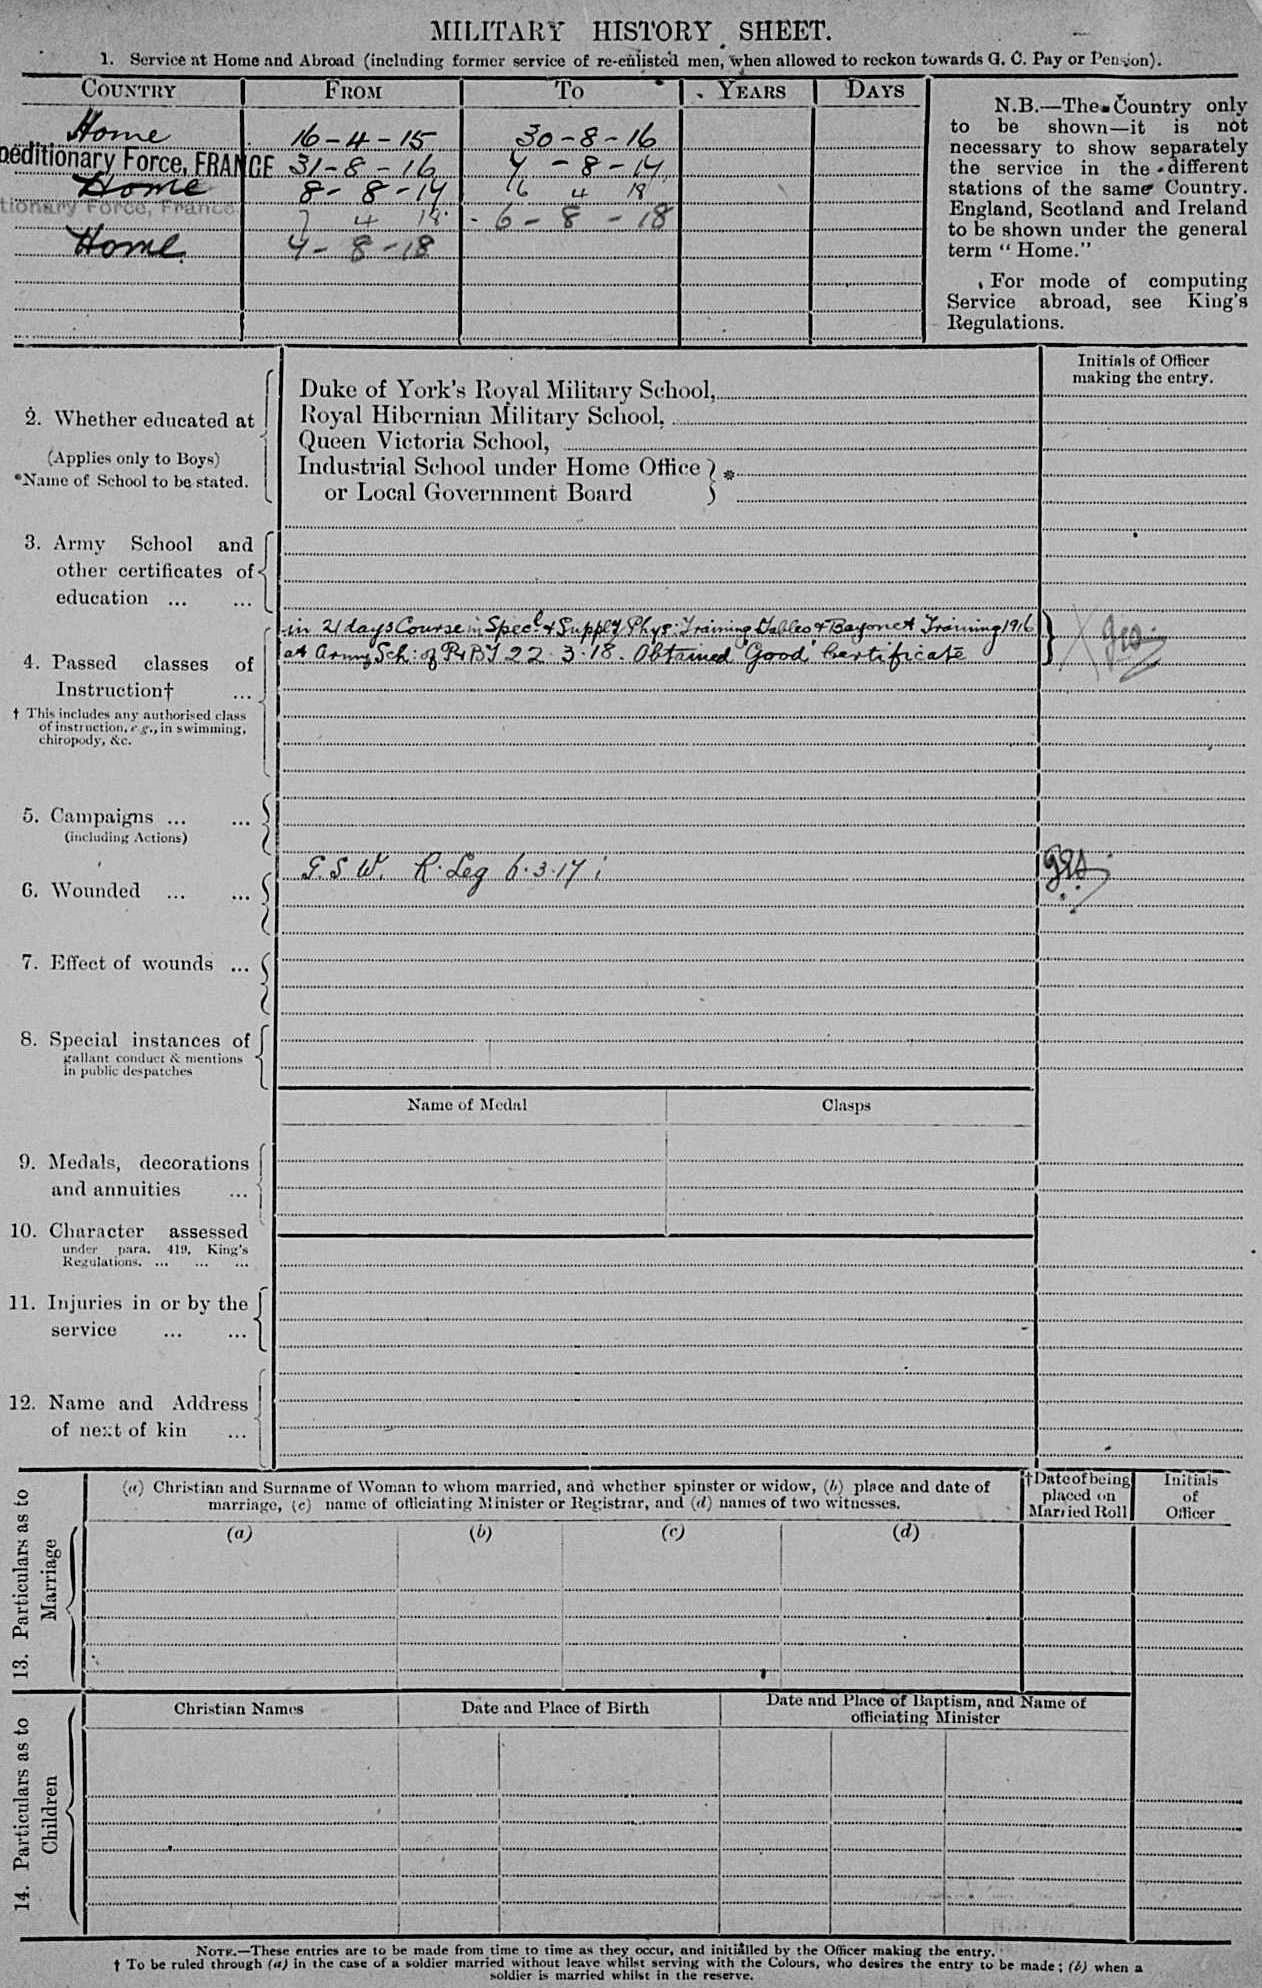 MILITARY HISTORY SHEET.
1. Service at Home and Abroad (including former service of re-enlisted men, when allowed to reckon towards G. C. Pay or Pension).
COUNTRY FROM TO YEARS DAYS
Home 16-4-15 30-8-16
peditionary Force, FRANCE 31-8-16 7-8-17
Home 8-8-17 6 4 18
tionary Force, France. 7 4 18 6-8-18
Home 7-8-18
N.B.—The Country only
to be shown—it is not
necessary to show separately
the service in the different
stations of the same Country.
England, Scotland and Ireland
to be shown under the general
term “Home.”
For mode of computing
Service abroad, see King's
Regulations.
Initials of Officer
making the entry.
2. Whether educated at
(Applies only to Boys)
*Name of School to be stated.
Duke of York's Royal Military School,
Royal Hibernian Military School,
Queen Victoria School,
Industrial School under Home Office } *
or Local Government Board
3. Army School and
other certificates of
education ... ...
4. Passed classes of
Instruction† ...
† This includes any authorised class
of instruction, e.g., in swimming,
chiropody, &c.
in 21 days Course in Specl & Supply Phys: Training Tables & Bayonet Training 1916
at Army Sch: of P & BT 22.3.18. Obtained "Good" Certificate
5. Campaigns ... ...
(including Actions)
6. Wounded ... ...
G.S.W. R. Leg 6.3.17
7. Effect of wounds ...
8. Special instances of
gallant conduct & mentions
in public despatches
Name of Medal Clasps
9. Medals, decorations
and annuities ...
10. Character assessed
under para. 419, King's
Regulations. ... ... ...
11. Injuries in or by the
service ... ...
12. Name and Address
of next of kin ...
13. Particulars as to
Marriage
(a) Christian and Surname of Woman to whom married, and whether spinster or widow, (b) place and date of
marriage, (c) name of officiating Minister or Registrar, and (d) names of two witnesses.
†Date of being
placed on
Married Roll
Initials
of
Officer
(a) (b) (c) (d)
14. Particulars as to
Children
Christian Names Date and Place of Birth Date and Place of Baptism, and Name of
officiating Minister
NOTE.—These entries are to be made from time to time as they occur, and initialled by the Officer making the entry.
† To be ruled through (a) in the case of a soldier married without leave whilst serving with the Colours, who desires the entry to be made; (b) when a
soldier is married whilst in the reserve.